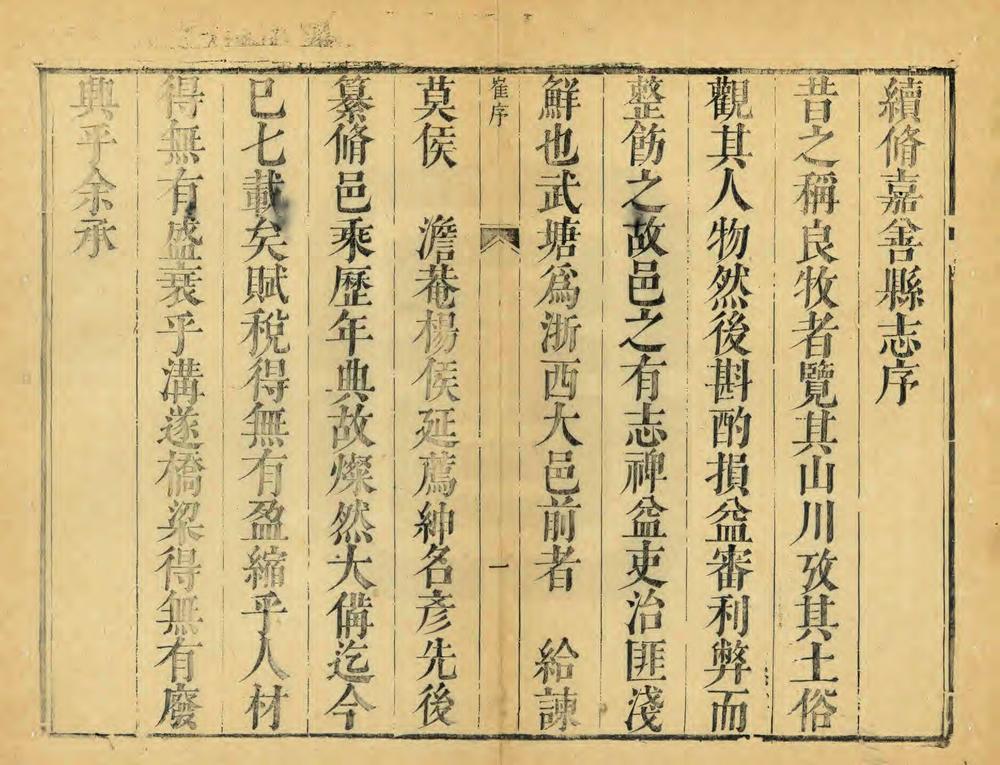 續脩嘉善縣志序
昔之稱良牧者覽其山川攷其土俗
觀其人物然後斟酌損益審利弊而
整飭之故邑之有志裨益吏治匪淺
鮮也武塘爲浙西大邑前者　給諫
崔序
一
莫侯　澹菴楊侯延薦紳名彥先後
纂脩邑乘歷年典故燦然大備迄今
已七載矣賦稅得無有盈縮乎人材
得無有盛衰乎溝遂橋梁得無有廢
興乎余承